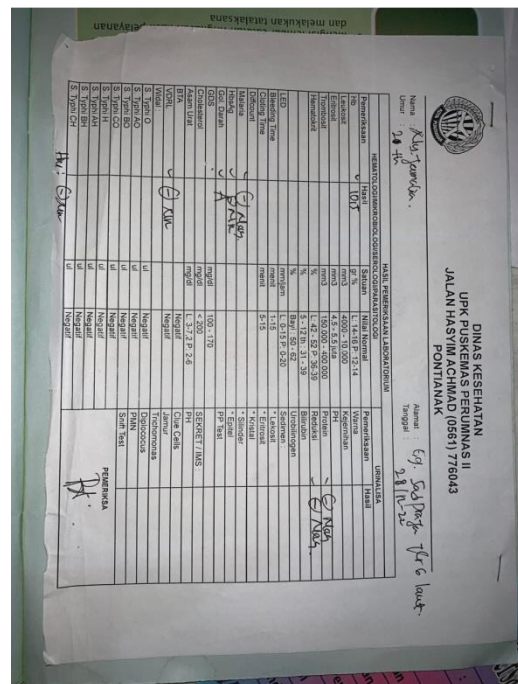 DINAS KESEHATAN
UPK PUSKEMAS PERUMNAS II
JALAN HASYIM ACHMAD (0561) 776043
PONTIANAK
Nama :
Umur : 20 th
Alamat :
Tanggal : 28/12-20
HASIL PEMERIKSAAN LABORATORIUM
HEMATOLOGI/MIKROBIOLOGI/SEROLOGI/PARASITOLOGI URINALISA
Pemeriksaan Hasil Satuan Nilai Normal Pemeriksaan Hasil
Hb 10,5 gr % L: 14-16 P: 12-14 Warna
Leukosit mm3 4000 - 10.000 Kejernihan
Eritrosit mm3 4,5 - 5,5 juta PH
Trombosit mm3 150.000 - 400.000 Protein ⊖ Neg
Hematokrit % L: 42 - 52 P: 36-39 Reduksi ⊖ Neg
% 5 - 12 th : 31 - 39 Bilirubin
% Bayi : 50 - 62 Urobilinogen
LED mm/jam L: 0-15 P: 0-20 Sedimen
Bleeding Time menit 1-15 * Lekosit
Cloting Time menit 5-15 * Eritrosit
Diffcount * Kristal
Malaria ⊖ Neg * Silinder
HbsAg ⊖ NR * Epitel
Gol. Darah A PP Test
GDS mg/dl 100 - 170
Cholesterol mg/dl < 200 SEKRET / IMS :
Asam Urat mg/dl L: 3-7, 2 P: 2-6 PH
BTA Negatif Clue Cells
VDRL ⊖ Negatif Jamur
Widal : Trichomonas
S. Typhi O ul Negatif Diplococus
S. Typhi AO ul Negatif PMN
S. Typhi BO ul Negatif Sniff Test
S. Typhi CO ul Negatif
S. Typhi H ul Negatif
S. Typhi AH ul Negatif
S. Typhi BH ul Negatif
S. Typhi CH ul Negatif
PEMERIKSA
dan melakukan tatalaksana
pelayanan